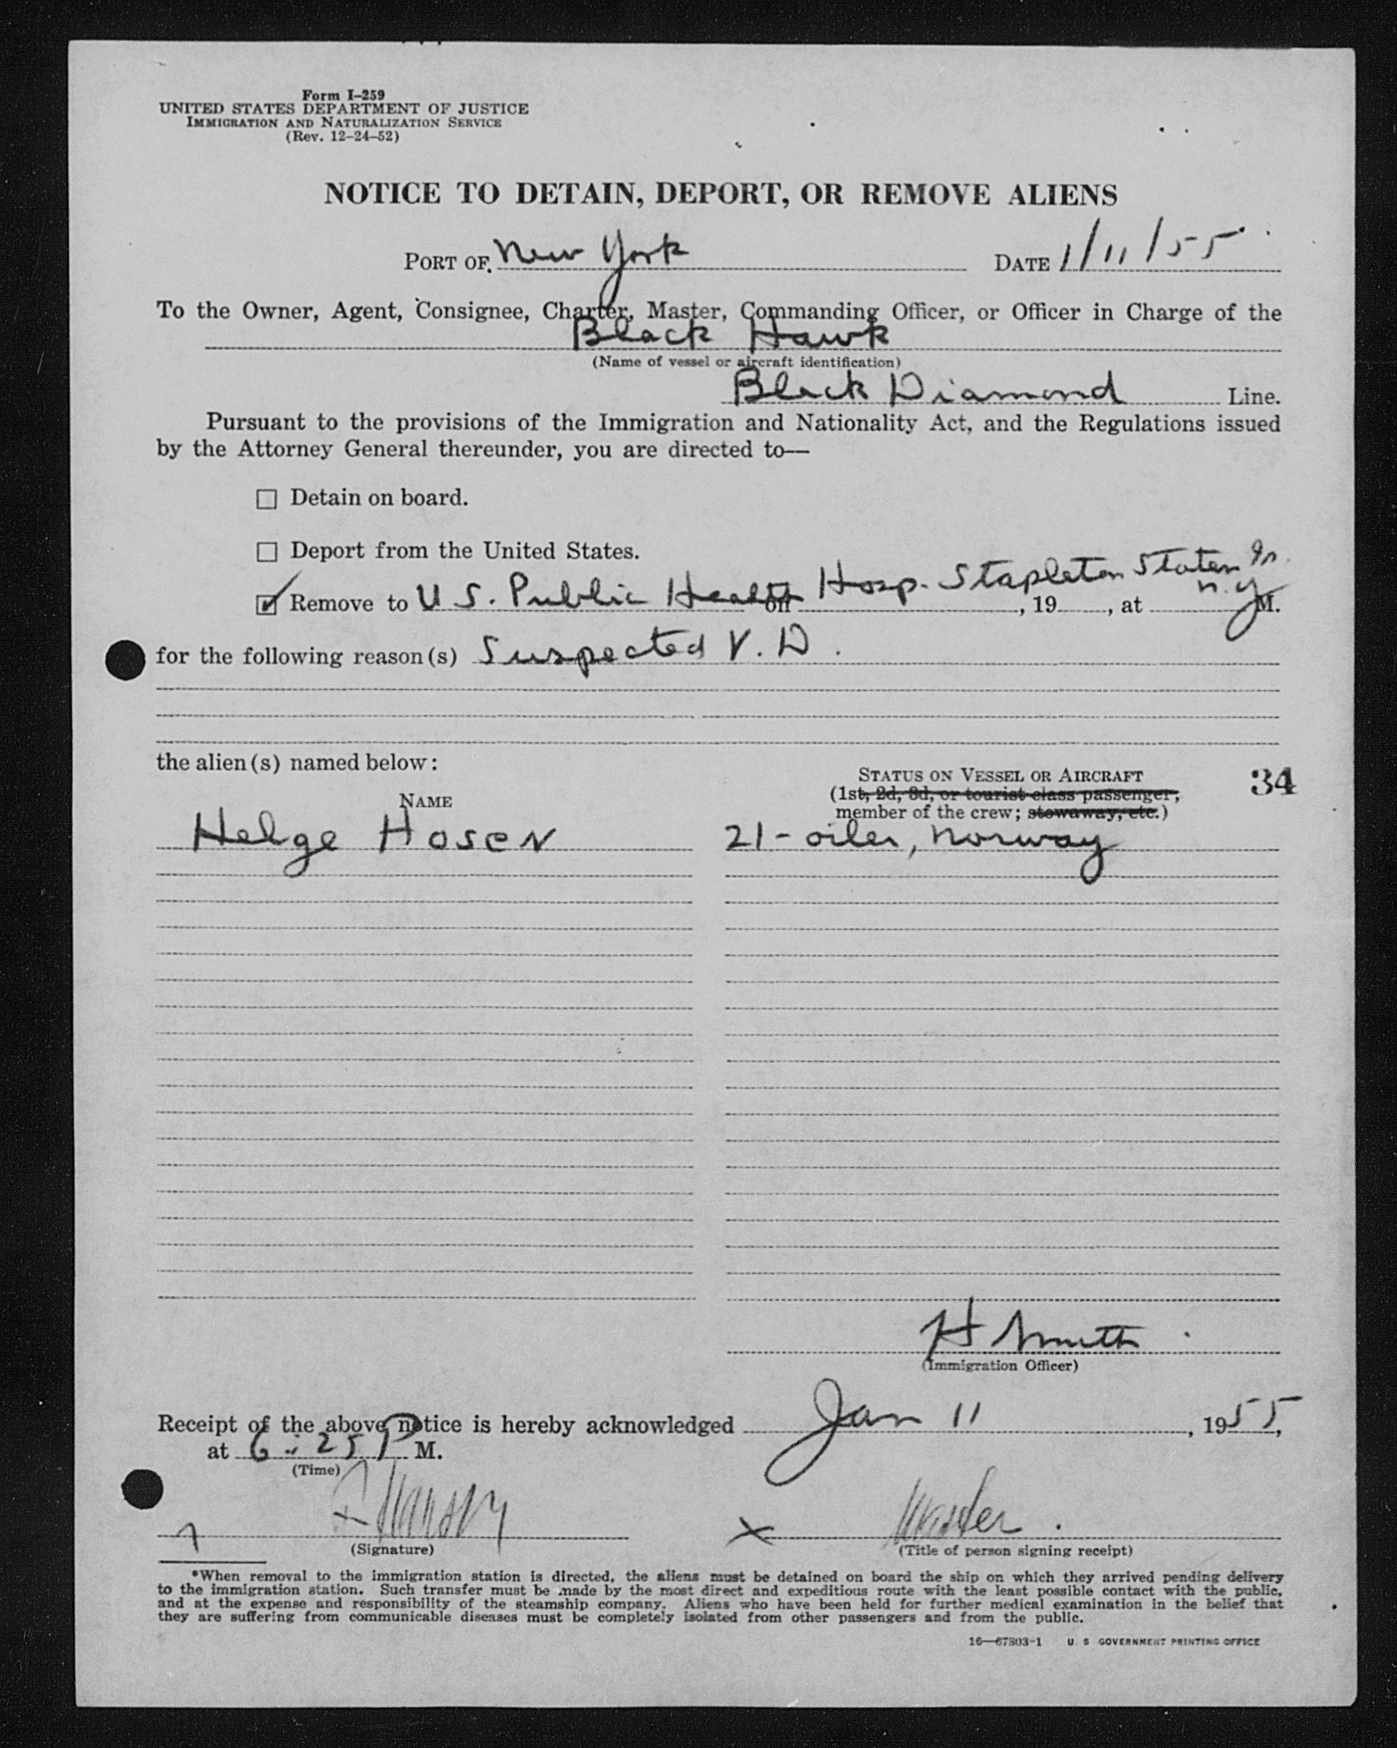 Form I-259
UNITED STATES DEPARTMENT OF JUSTICE
IMMIGRATION AND NATURALIZATION SERVICE
(Rev. 12-24-52)
NOTICE TO DETAIN, DEPORT, OR REMOVE ALIENS
PORT OF New York DATE 1/11/55
To the Owner, Agent, Consignee, Charter, Master, Commanding Officer, or Officer in Charge of the
Black Hawk
(Name of vessel or aircraft identification)
Black Diamond Line.
Pursuant to the provisions of the Immigration and Nationality Act, and the Regulations issued
by the Attorney General thereunder, you are directed to—
☐ Detain on board.
☐ Deport from the United States.
☑ Remove to U S. Public Health Hosp. Stapleton Staten Is. n.y. on , 19 , at M.
for the following reason(s) Suspected V. D.
the alien(s) named below:
34
NAME
STATUS ON VESSEL OR AIRCRAFT
(1st, 2d, 3d, or tourist class passenger,
member of the crew; stowaway, etc.)
Helge Hosen 21 - oiler, Norway
H Smith
(Immigration Officer)
Receipt of the above notice is hereby acknowledged Jan 11, 1955,
at 6:25 P M.
(Time)
x Master.
(Signature) (Title of person signing receipt)
*When removal to the immigration station is directed, the aliens must be detained on board the ship on which they arrived pending delivery
to the immigration station. Such transfer must be made by the most direct and expeditious route with the least possible contact with the public,
and at the expense and responsibility of the steamship company. Aliens who have been held for further medical examination in the belief that
they are suffering from communicable diseases must be completely isolated from other passengers and from the public.
16—67803-1 U. S. GOVERNMENT PRINTING OFFICE